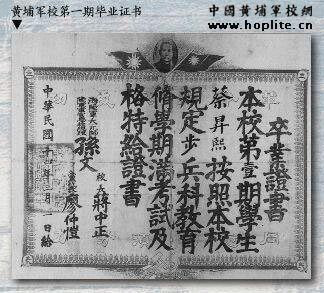 黄埔军校第一期毕业证书
中國黄埔军校網
www.hoplite.cn
卒業證書
本校第壹期學生
蔡昇熙按照本校
規定步兵科教育
脩學期滿考試及
格特給證書
孫文
校長 蔣中正
廖仲愷
中華民國十 年 月 日給